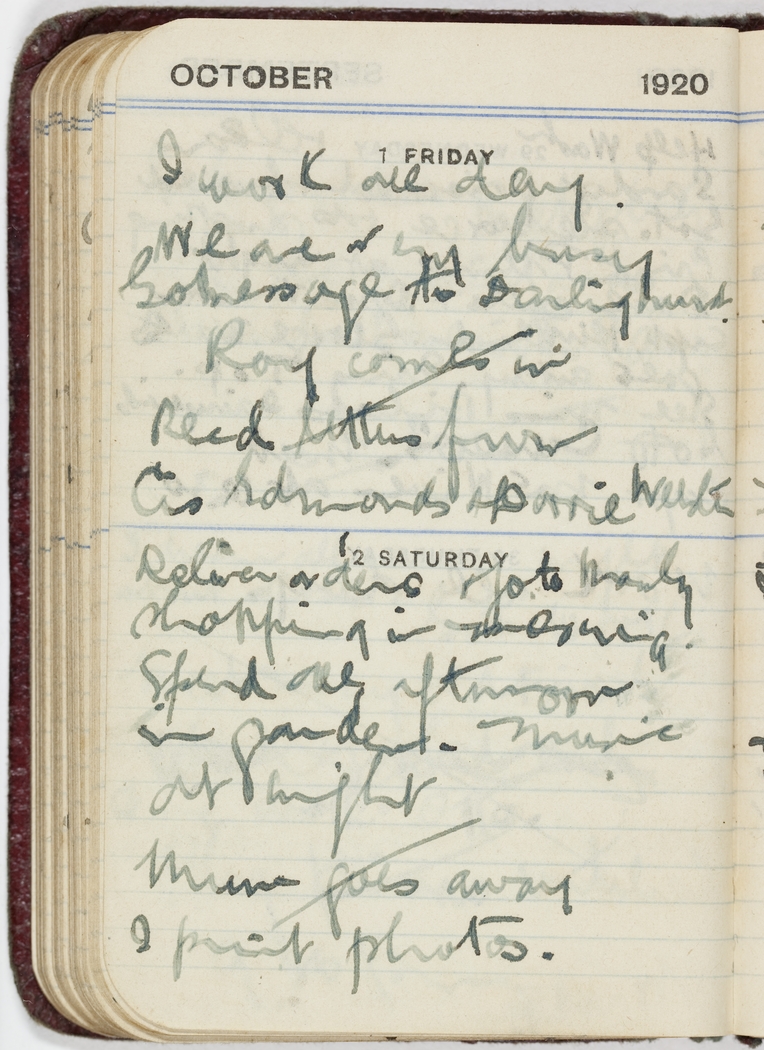 OCTOBER 1920
1 FRIDAY
I work all day.
We are very busy
Go message to Darlinghurst.
Roy comes in
Read letters from
Cis Edmonds & Dorrie
2 SATURDAY
Deliver orders & go to Manly
shopping in morning.
Spend all afternoon
in garden. Music
at night
Mum goes away
I print photos.